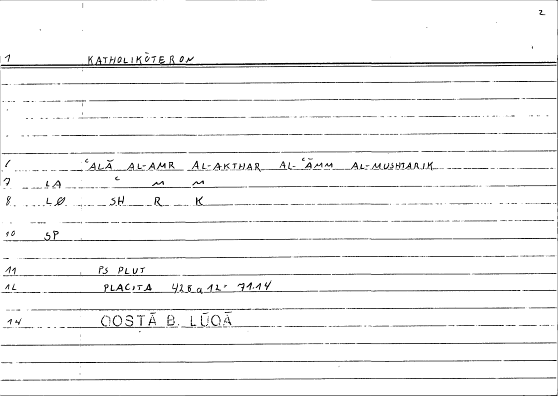 2
1 KATHOLIKŌTERON
6 ʿALĀ AL-AMR AL-AKTHAR AL-ʿĀMM AL-MUSHTARIK
7 LA ʿ M M
8 LØ SH R K
10 SP
11 PS PLUT
12 PLACITA 428a12 71.14
14 QOSTĀ B. LŪQĀ